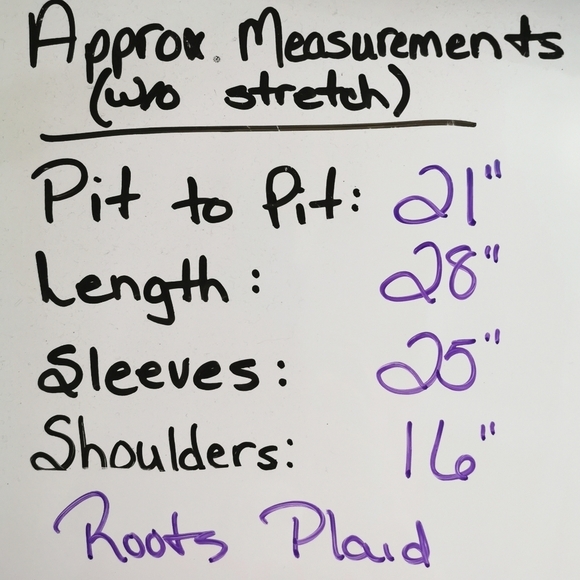 Approx. Measurements
(w/o stretch)
Pit to Pit: 21"
Length: 28"
Sleeves: 25"
Shoulders: 16"
Roots Plaid